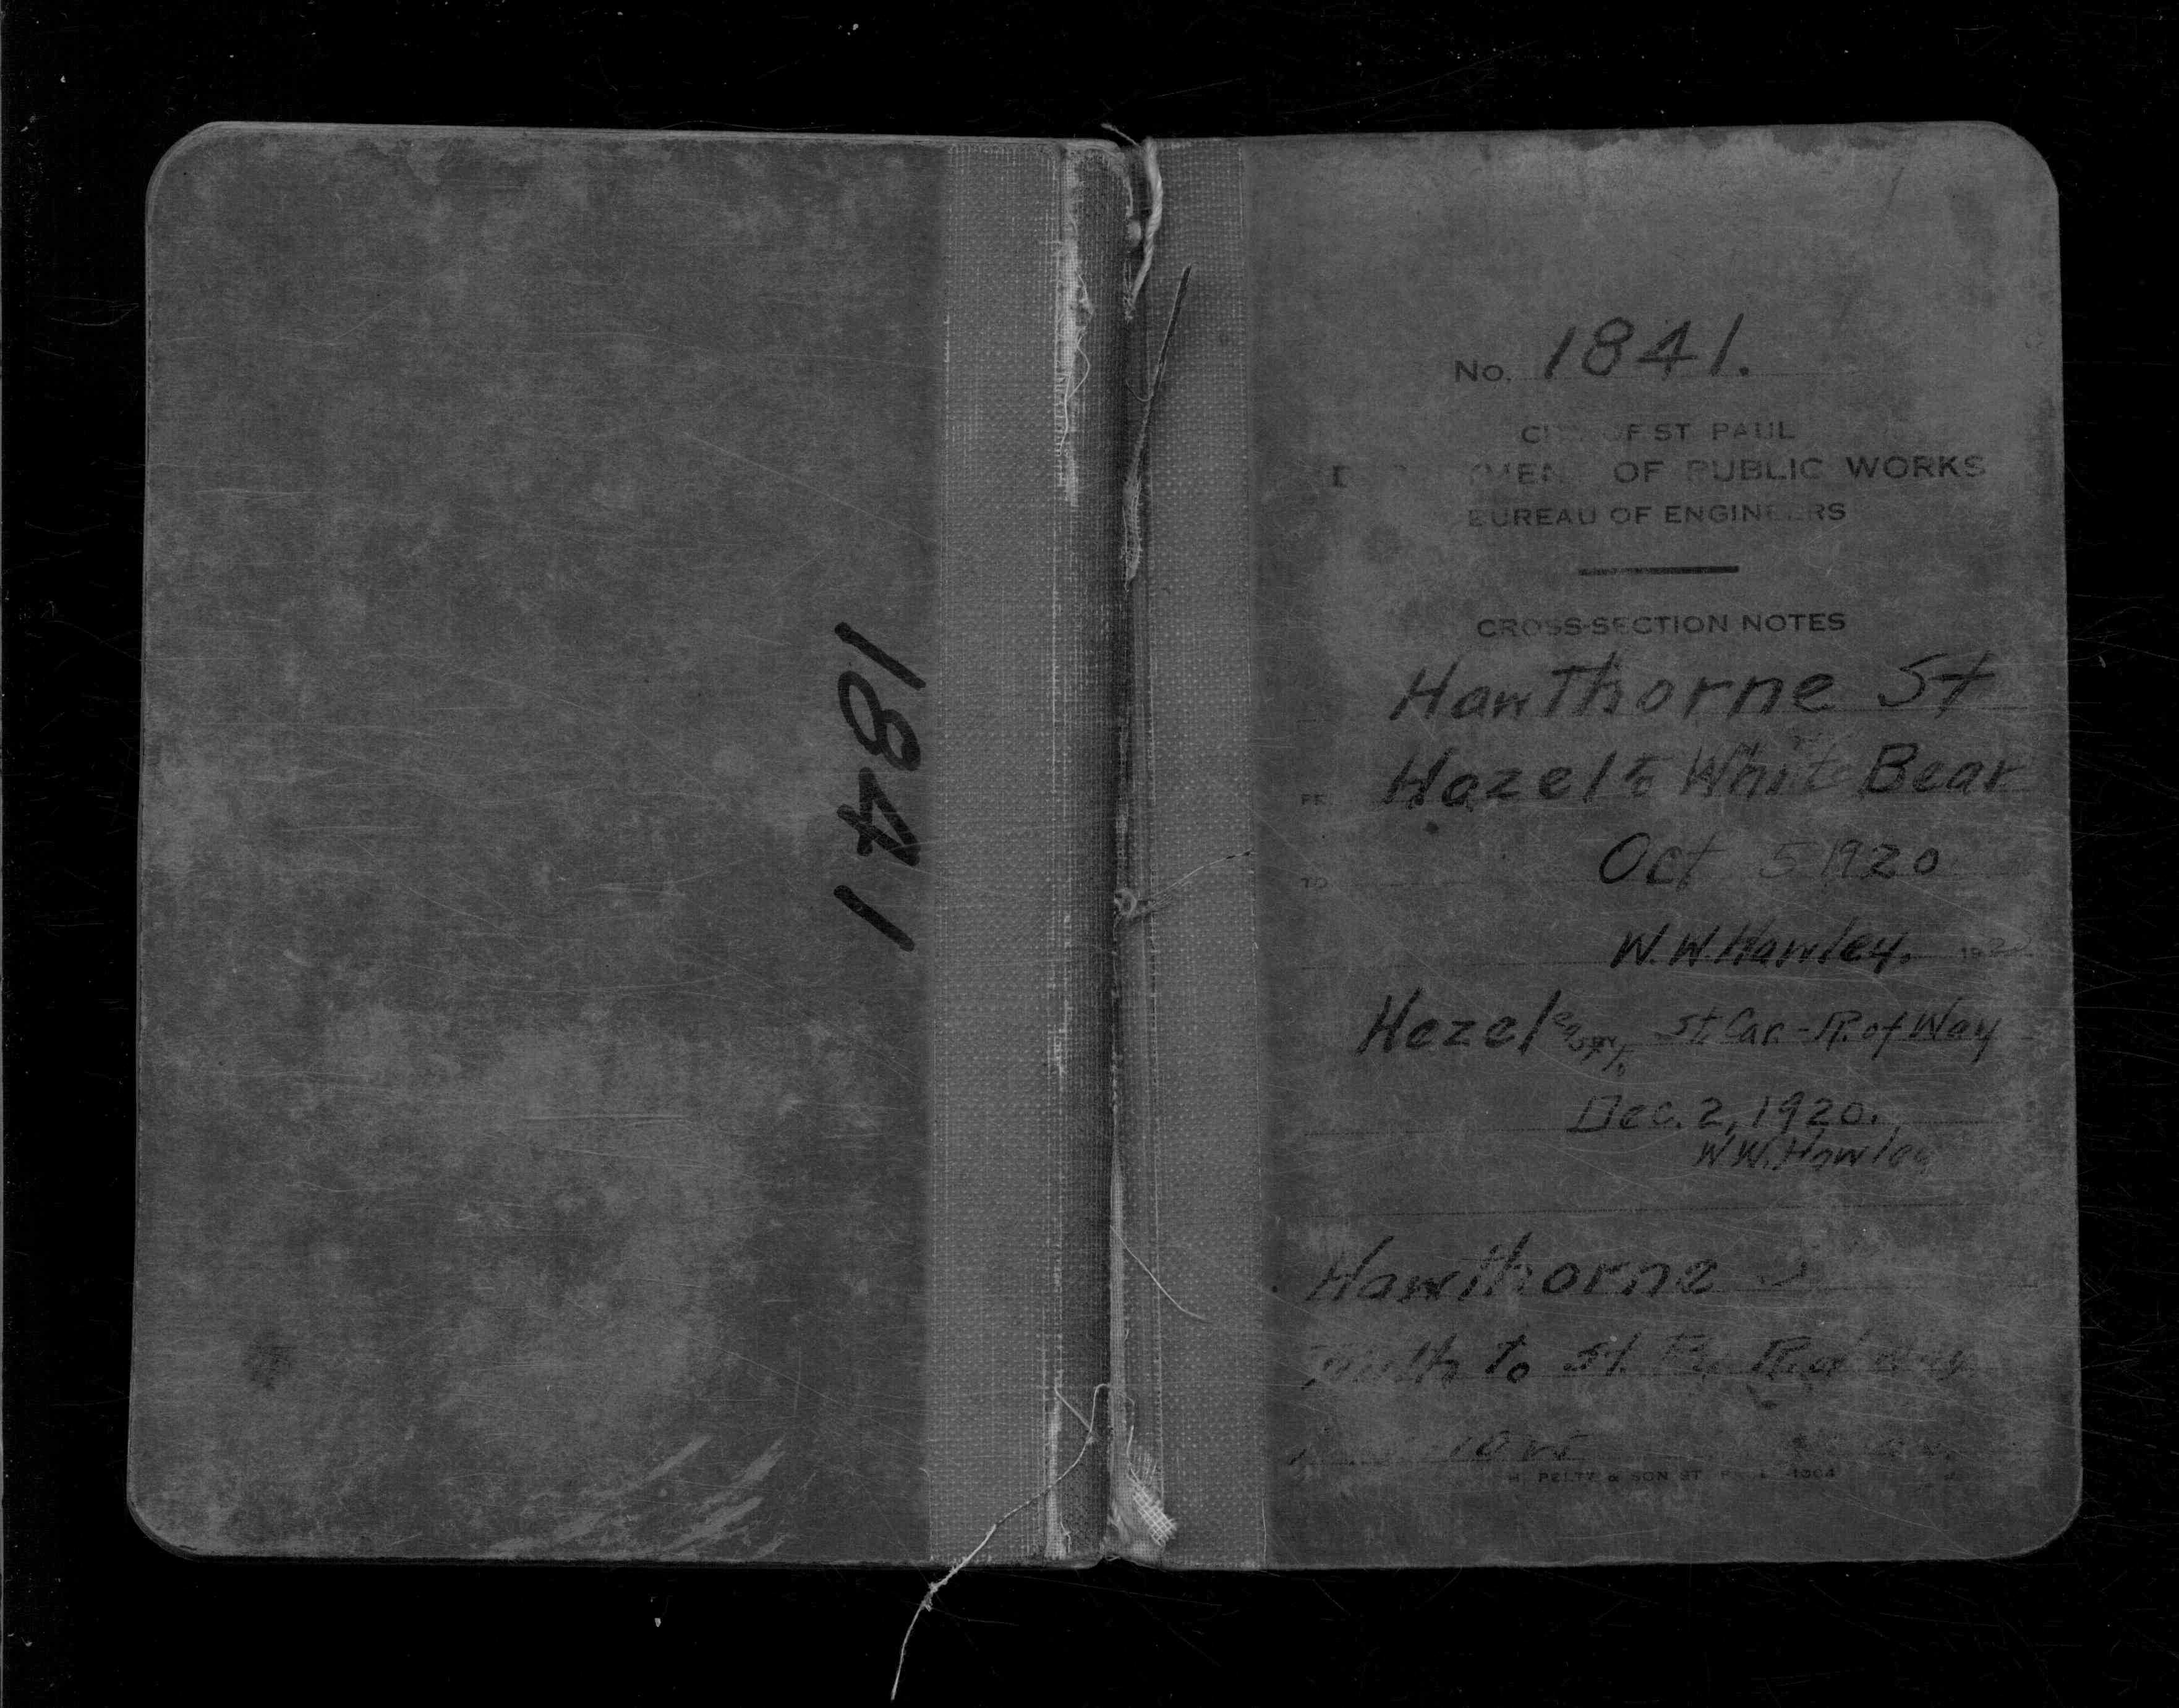 1841
No. 1841.
CITY OF ST PAUL
DEPARTMENT OF PUBLIC WORKS
BUREAU OF ENGINEERS
CROSS-SECTION NOTES
Hawthorne St
Hazel to White Bear
Oct 5 1920
TO
W.W. Hawley. 192
Hazel St. Car.-R. of Way
Dec. 2, 1920.
W.W. Hawley
Hawthorne
to St. R. of Way
& SON ST. PAUL